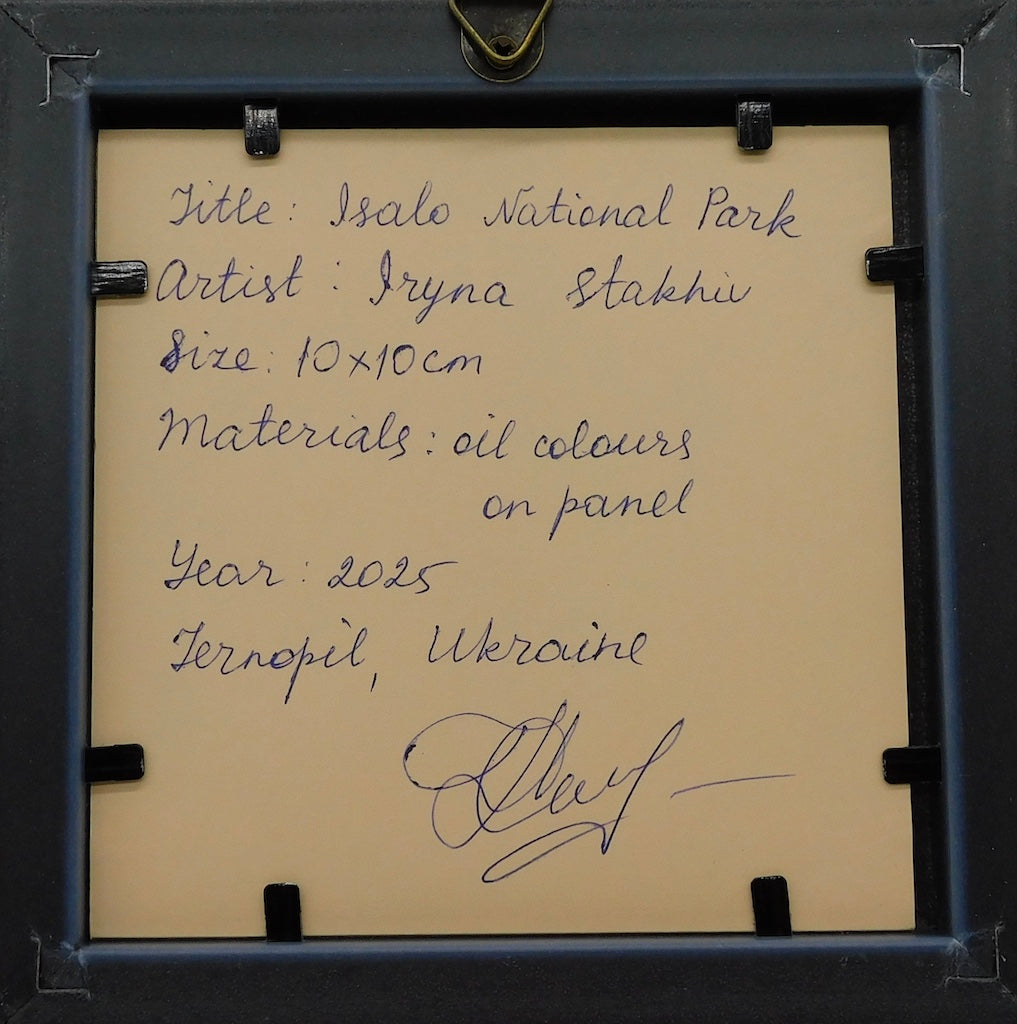 Title: Isalo National Park
Artist: Iryna Stakhiv
Size: 10x10cm
Materials: oil colours
on panel
Year: 2025
Ternopil, Ukraine